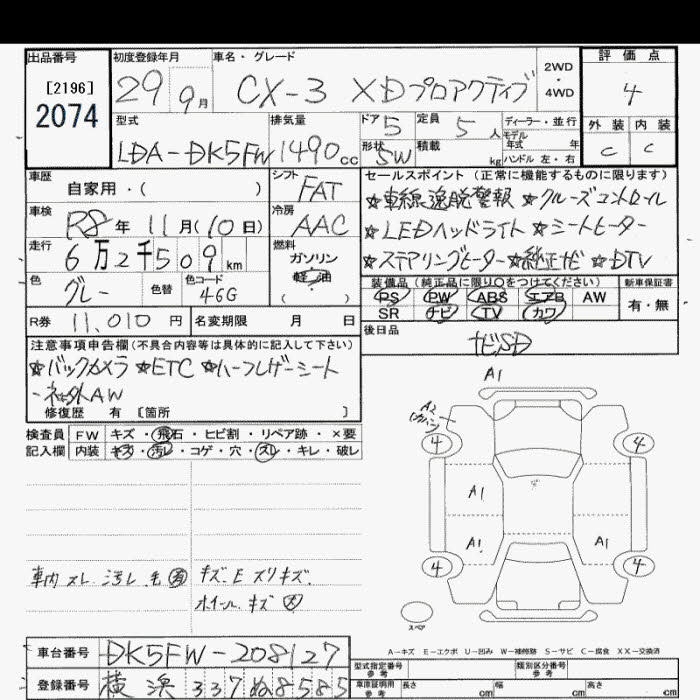 出品番号
[2196]
2074
初度登録年月
29 9月
車名・グレード
CX-3 XDプロアクティブ
2WD
・
4WD
評価点
4
外装 内装
C C
型式
LDA-DK5FW
排気量
1490cc
ドア 5
定員 5人
形状 SW
積載 kg
ディーラー・並行
モデル
年式 年
ハンドル 左・右
車歴
自家用・( )
シフト
FAT
車検
R8年 11月(10日)
冷房
AAC
走行
6万2千509km
燃料
ガソリン
軽油
( )
色
グレー
色替
色コード
46G
R券 11,010円
名変期限 月 日
セールスポイント(正常に機能するものに限ります)
☆車線逸脱警報 ☆クルーズコントロール
☆LEDヘッドライト ☆シートヒーター
☆ステアリングヒーター ☆純正ナビ ☆DTV
装備品(純正品に限り○をつけてください)
PS PW ABS エアB AW
SR ナビ TV カワ
新車保証書
有・無
後日品
ナビSD
注意事項申告欄(不具合内容等は具体的に記入して下さい)
☆バックカメラ ☆ETC ☆ハーフレザーシート
・社外AW
修復歴 有 [箇所 ]
検査員 FW キズ・飛石・ヒビ割・リペア跡・×要
記入欄 内装 キズ・汚レ・コゲ・穴・スレ・キレ・破レ
車内スレ 汚レ 毛 有 キズ、E スリキズ、
ホイールキズ 大
A1
A2
4 4
A1
A1 A1
4 4
スペア
A=キズ E=エクボ U=凹み W=補修跡 S=サビ C=腐食 XX=交換済
車台番号 DK5FW-208127
登録番号 横浜 337 ぬ8585
型式指定番号
参考
類別区分番号
参考
車庫証明用
参考
長さ cm 幅 cm 高さ cm